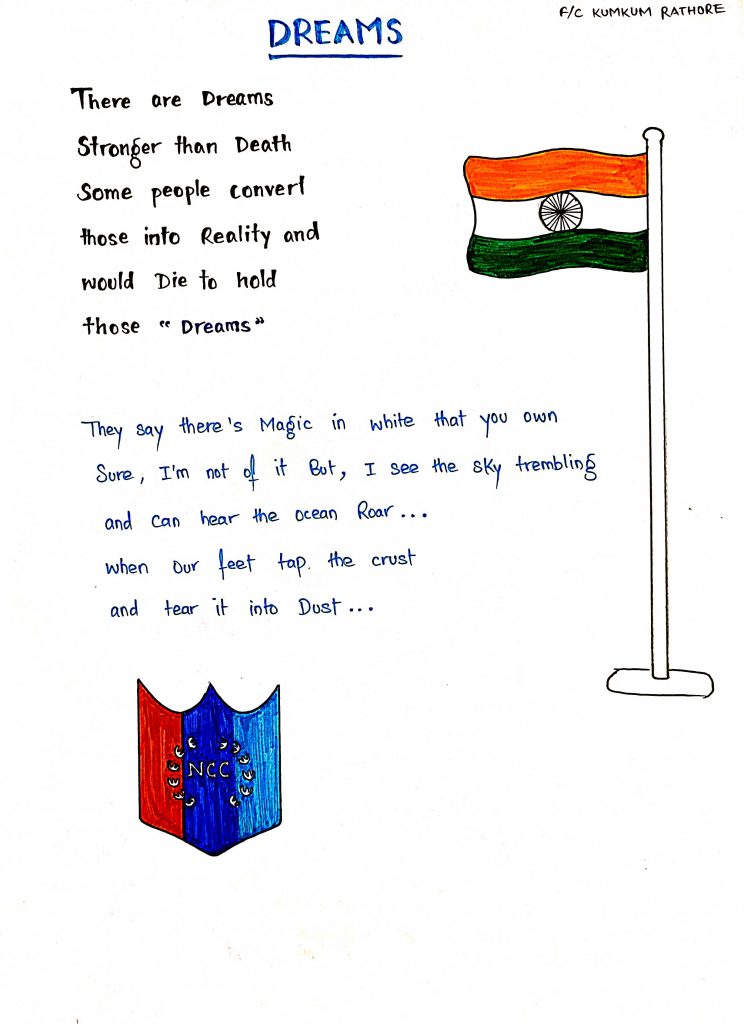 F/C KUMKUM RATHORE
DREAMS
There are Dreams
Stronger than Death
Some people convert
those into Reality and
would Die to hold
those "Dreams"
They say there's Magic in white that you own
Sure, I'm not of it But, I see the sky trembling
and can hear the ocean Roar...
when our feet tap. the crust
and tear it into Dust...
NCC